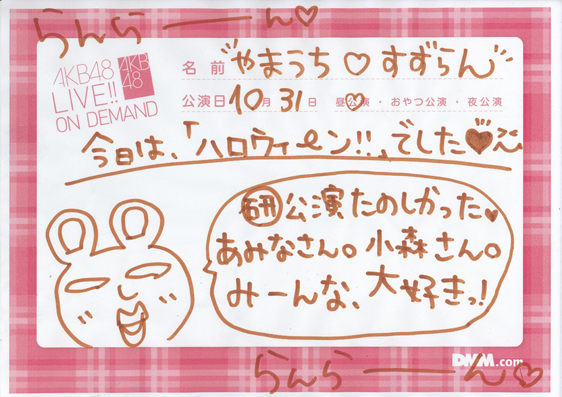 らんらーん♡
AKB48
LIVE!!
ON DEMAND
AKB
48
名前 "やまうち♡すずらん"
公演日 10月 31日 昼公演・おやつ公演・夜公演
今日は、「ハロウィーン!!」でした♥
㊙研公演たのしかった♥
あみなさん。小森さん。
みーんな、大好きっ!
DMM.com
らんらーん♡